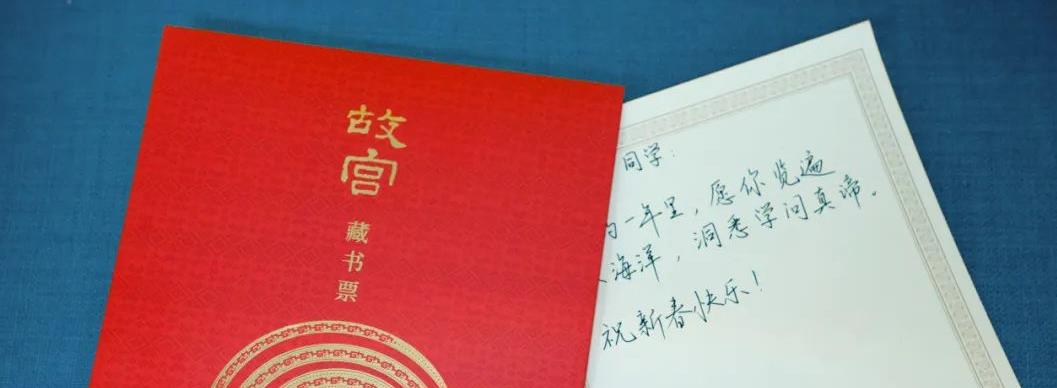 故
宫
藏
书
票
同学：
一年里，愿你览遍
海洋，洞悉学问真谛。
祝新春快乐！